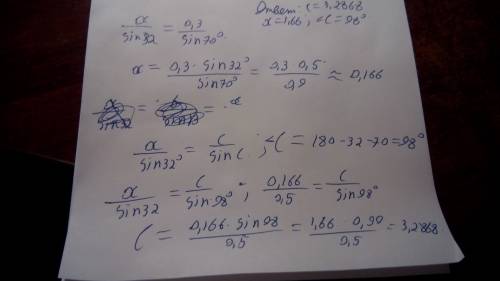 Ответ: c = 3,2868
x = 1,66, ∠C = 98°
x/sin 32 = 0,3/sin 70°
x = 0,3 · sin 32°/sin 70° = 0,3 · 0,5/0,9 ≈ 0,166
x/sin 32° = c/sin C ; ∠C = 180 - 32 - 70 = 98°
x/sin 32 = c/sin 98° ; 0,166/0,5 = c/sin 98°
C = 0,166 · sin 98/0,5 = 1,66 · 0,99/0,5 = 3,2868